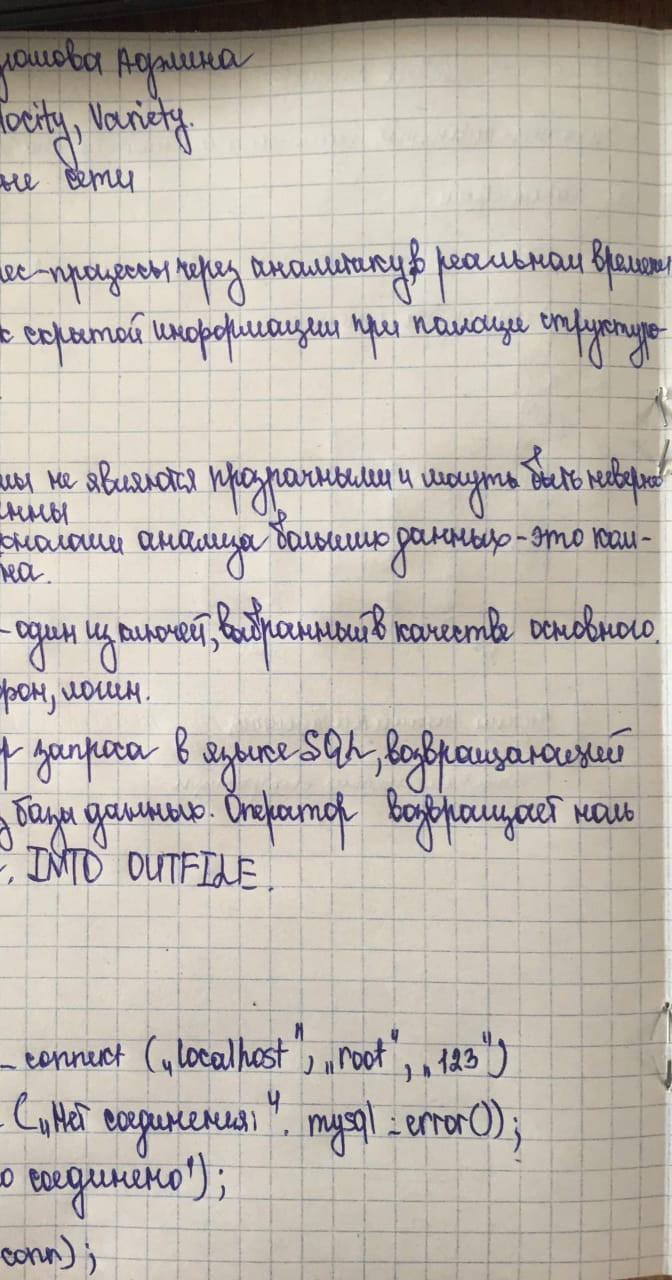 юмова Админа
locity, Variety.
ые сети
ес-процессы через аналитику, в реальном времени
к скрытой информации при помощи структуро-
мы не являются прозрачными и могут быть неверно
нны
хнологии анализа больших данных - это ком-
на.
- один из ключей, выбранный в качестве основного.
фон, логин.
р запроса в языке SQL, возвращающий
з базы данных. Оператор возвращает ноль
. INTO OUTFILE.
_connect („localhost", „root", „123")
("Нет соединения:". mysql_error());
о соединено');
conn);